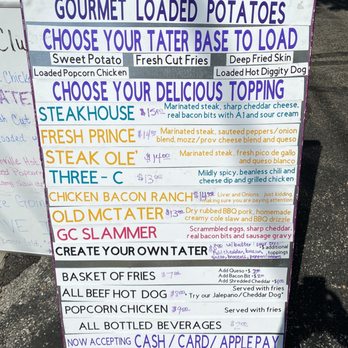 GOURMET LOADED POTATOES
CHOOSE YOUR TATER BASE TO LOAD
Sweet Potato Fresh Cut Fries Deep Fried Skin
Loaded Popcorn Chicken Loaded Hot Diggity Dog
CHOOSE YOUR DELICIOUS TOPPING
STEAKHOUSE $15.00 Marinated steak, sharp cheddar cheese,
real bacon bits with A.1 and sour cream
FRESH PRINCE Marinated steak, sauteed peppers/onion
blend, mozz/prov cheese blend and queso
STEAK OLE' $14.00 Marinated steak, fresh pico de gallo
and queso blanco
THREE - C $13.00 Mildly spicy, beanless chili and
cheese dip and grilled chicken
CHICKEN BACON RANCH $14.00 Liver and Onions. Just kidding,
making sure you are paying attention!
OLD MCTATER $13.00 Dry rubbed BBQ pork, homemade
creamy cole slaw and BBQ drizzle
GC SLAMMER Scrambled eggs, sharp cheddar,
real bacon bits and sausage gravy
CREATE YOUR OWN TATER additional
toppings
BASKET OF FRIES Add Queso
Add Bacon Bit
Add Shredded Cheese
ALL BEEF HOT DOG Served with fries
Try our Jalapeno/Cheddar Dog
POPCORN CHICKEN $9.00 Served with fries
ALL BOTTLED BEVERAGES
NOW ACCEPTING CASH / CARD / APPLEPAY